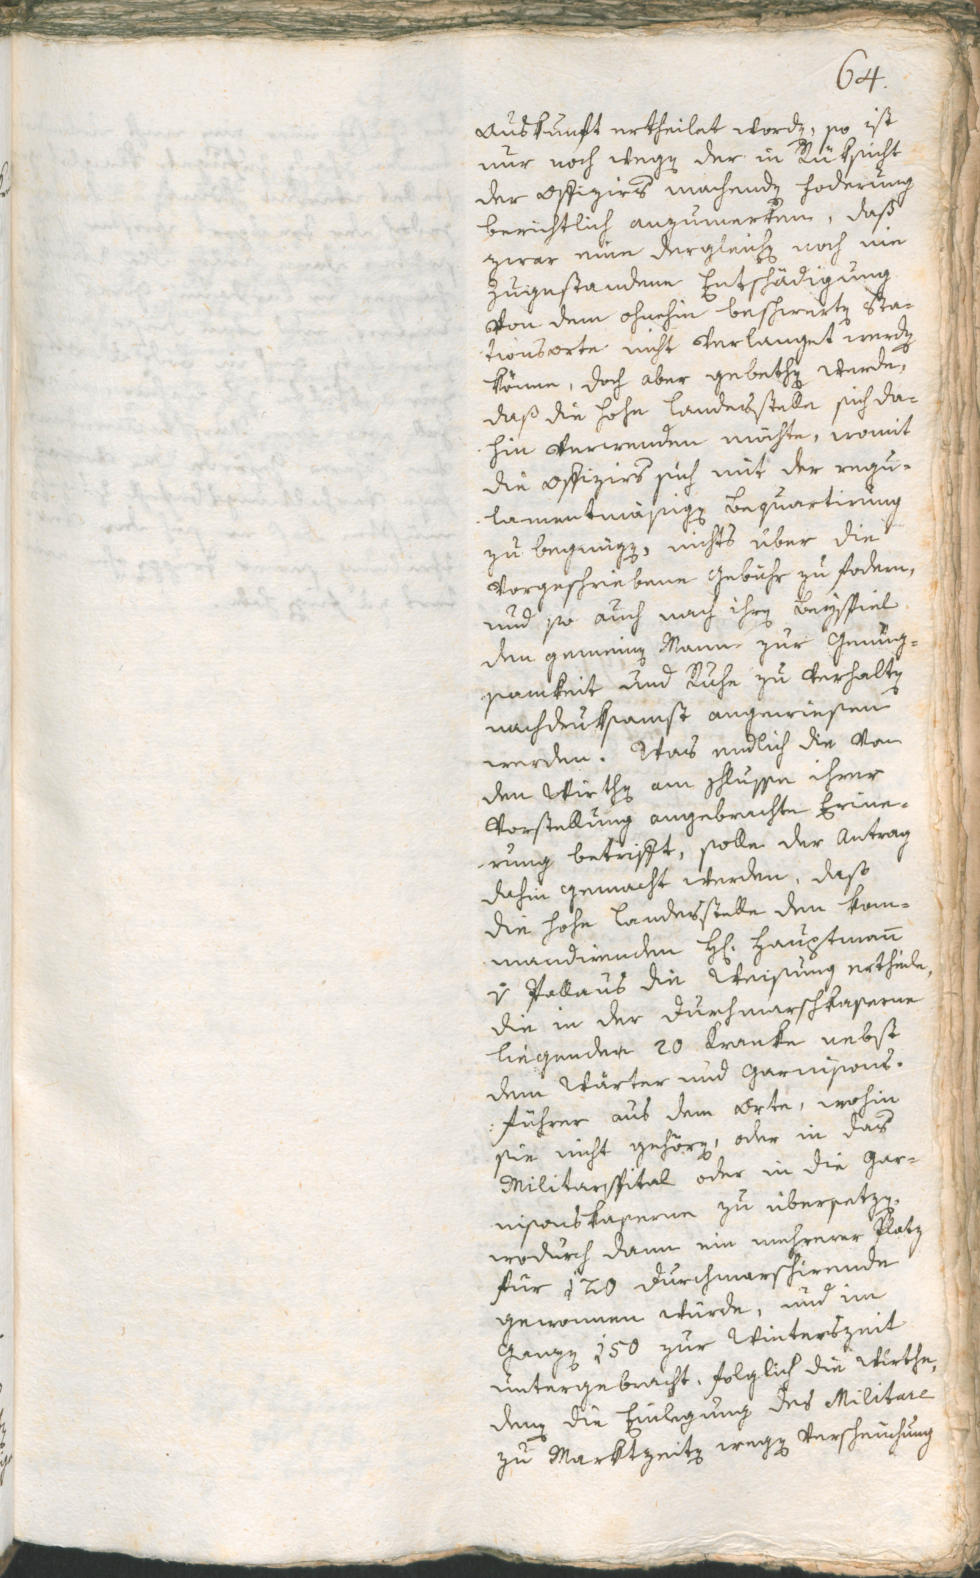 64.
Auskunft ertheilet word[en], so ist
nur noch weg[en] der in Rüksicht
der Offiziers machend[en] Foderung
berichtlich anzumerken, daß
zwar eine dergleich[en] noch nie
zugestandene Entschädigung
von dem ohnehin beschwert[en] Sta-
tionsorte nicht verlanget werd[en]
könne, doch aber gebeth[en] werde,
daß die hohe Landesstelle sich da-
hin verwenden möchte, womit
die Offiziers sich mit der regu-
lamentmäsig[en] Bequartirung
zu begnüg[en], nichts über die
vorgeschriebene Gebühr zu fodern,
und so auch nach ihr[en] Beyspiel
den gemein[en] Mann zur Genüg-
samkeit und Ruhe zu verhalt[en]
nachdruksamst angewiesen
werden. Was endlich die von
den Wirth[en] am Schlusse ihrer
Vorstellung angebrachte Erine-
rung betrifft, solle der Antrag
dahin gemacht werden, daß
die hohe Landesstelle dem kom-
mandirenden H[errn] Hauptman̄
v Pallaus die Weisung ertheile,
die in der Durchmarschkaserne
liegenden 20 Kranke nebst
dem Wärter und Garnisons-
führer aus dem Orte, wohin
sie nicht gehör[en], oder in das
Militarspital oder in die Gar-
nisonskaserne zu übersetz[en],
wodurch dann ein mehrerer Platz
für 120 Durchmarschirende
gewonnen würde, und im
Ganz[en] 150 zur Winterszeit
untergebracht, folglich die Wirthe,
den[en] die Einlegung des Militare
zu Marktzeit[en] weg[en] Verscheuchung